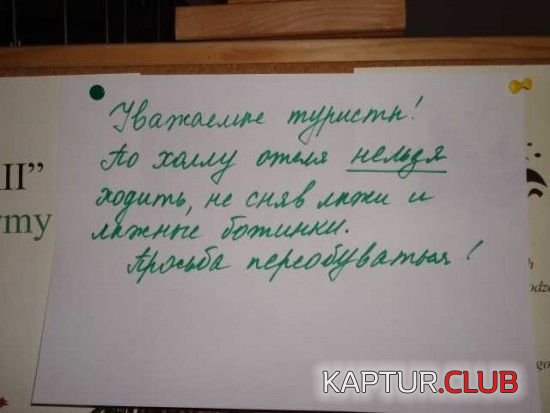 Уважаемые туристы!
По холлу отеля нельзя
ходить, не сняв лыжи и
лыжные ботинки.
Просьба переобуваться!
II”
my
KAPTUR.CLUB